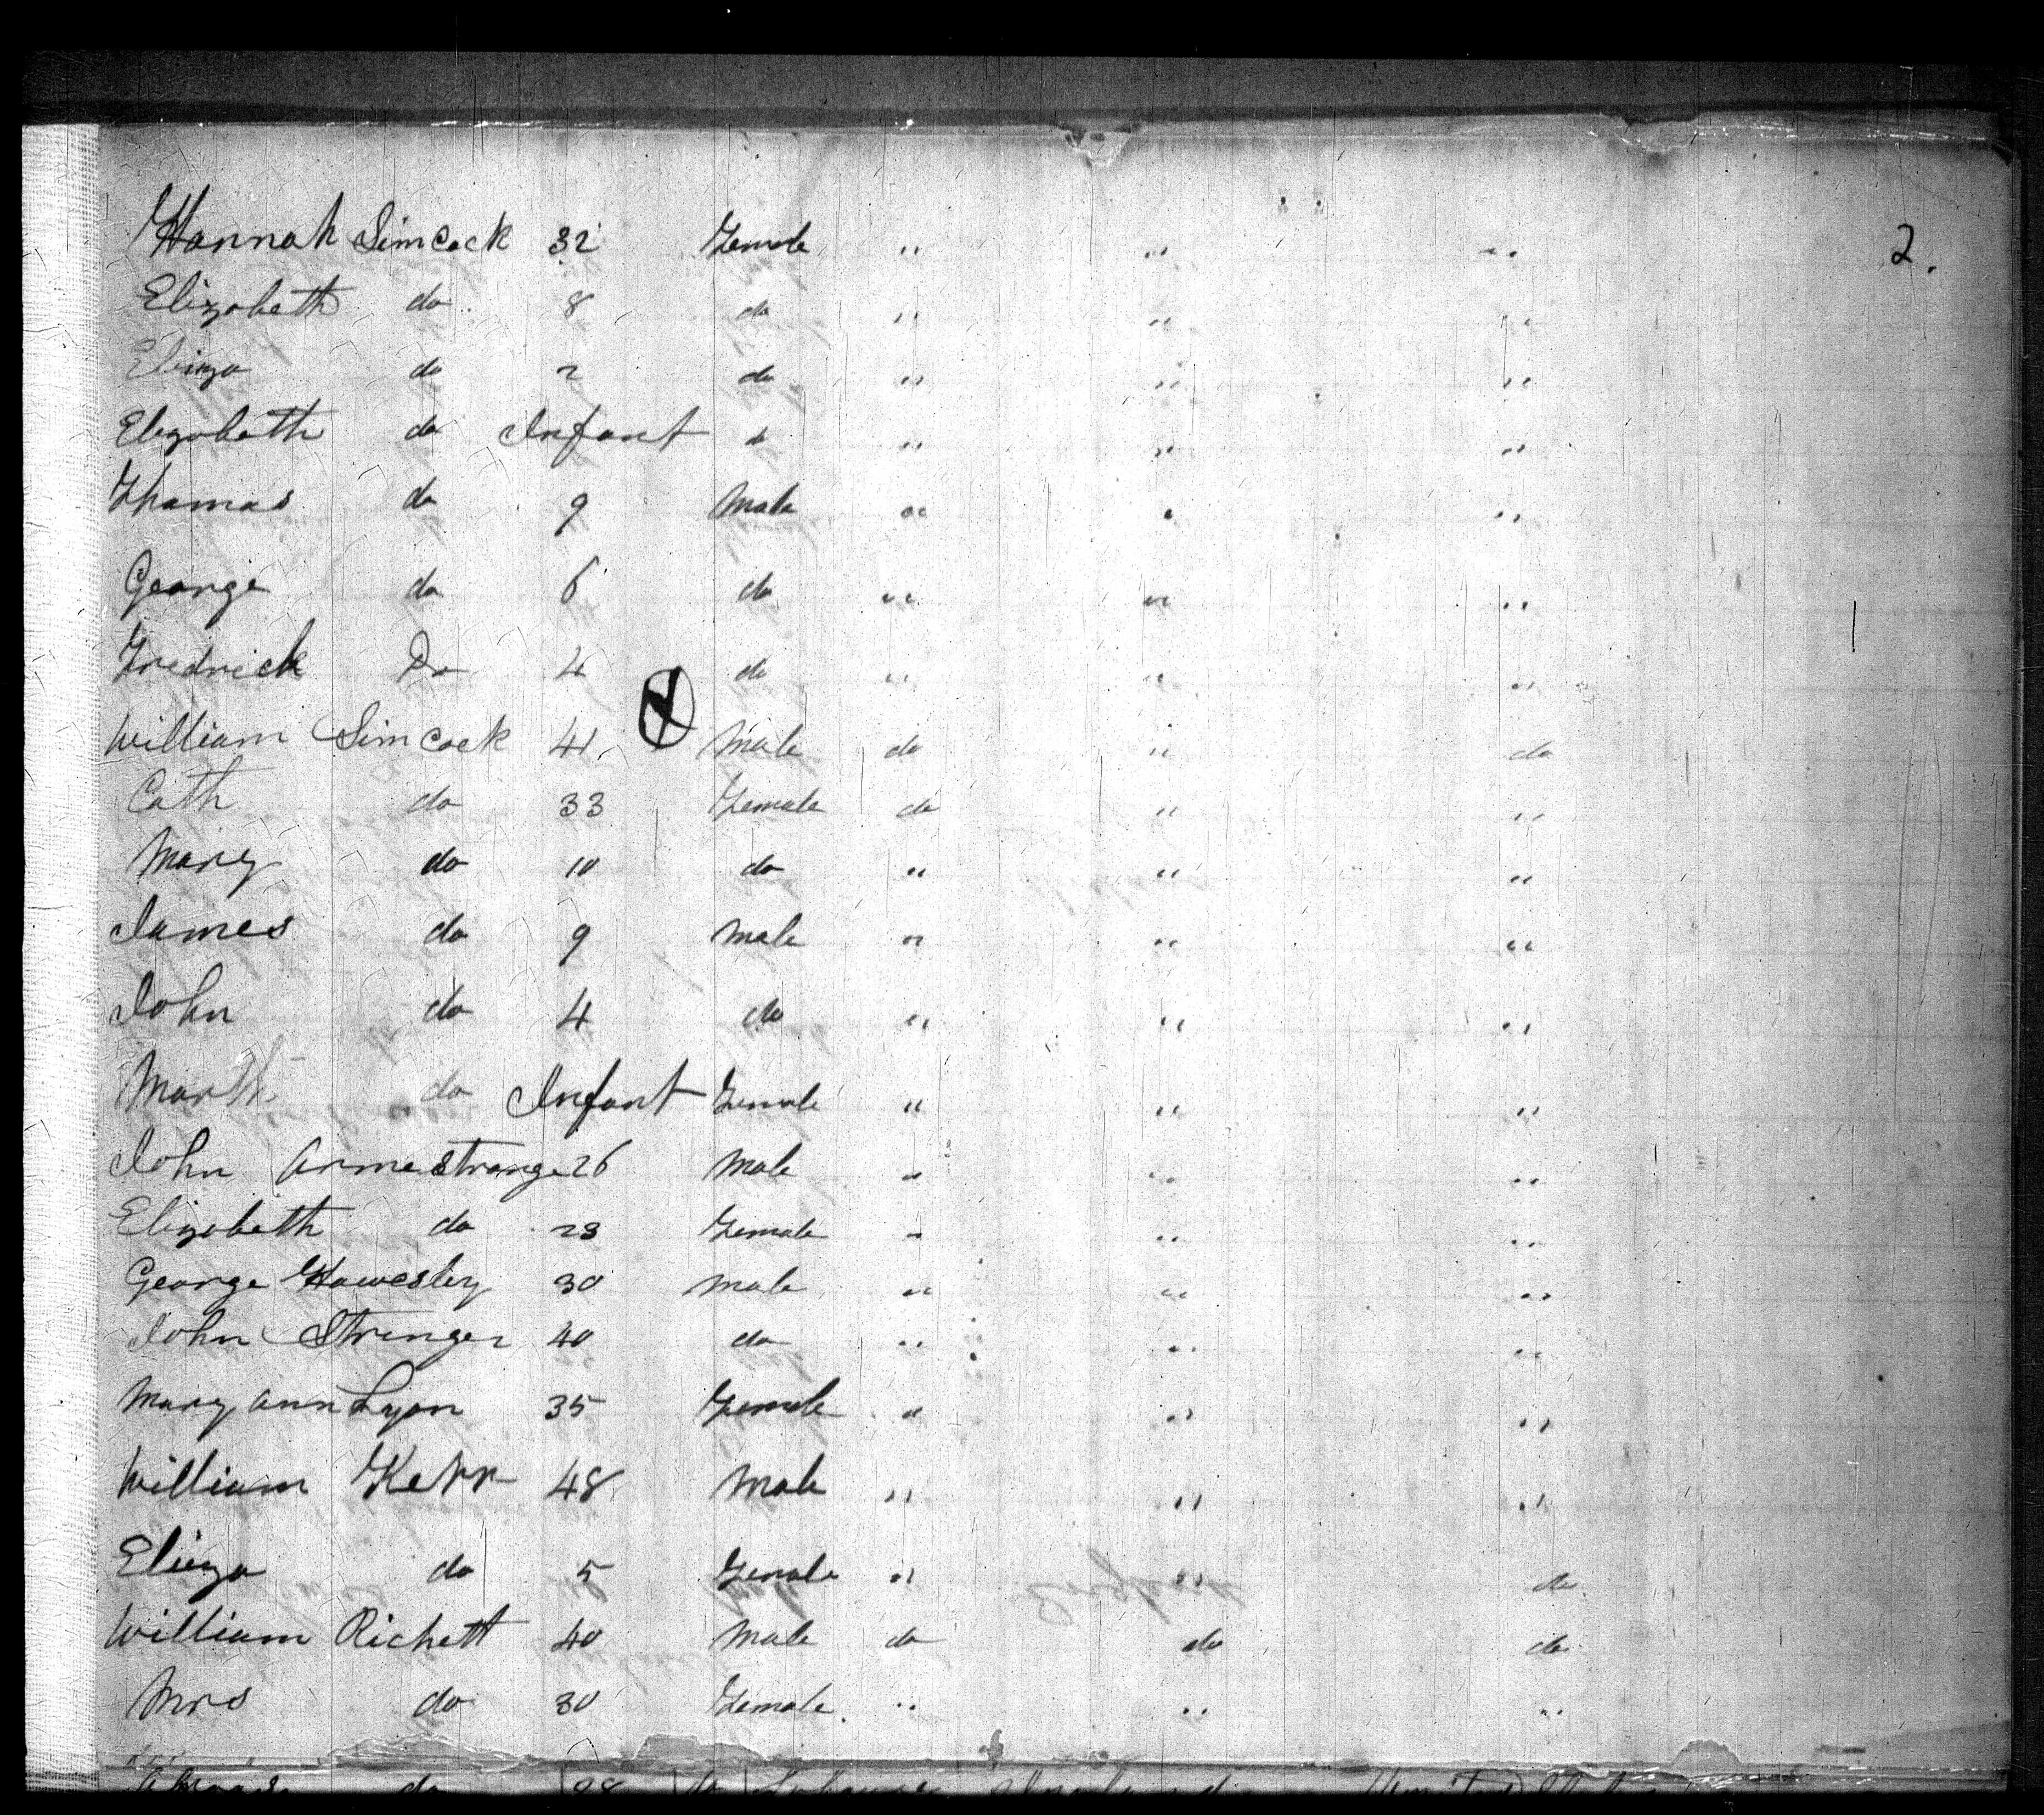 Hannah Simcock 32 Female " " " 2.
Elizabeth do 8 do " " "
Eliza do 2 do " " "
Elizabeth do Infant do " " "
Thomas do 9 Male " " "
George do 6 do " " "
Fredrick Do 4 do " " "
William Simcock 41 Male do " do
Cath do 33 Female do " "
Mary do 10 do " " "
James do 9 Male " " "
John do 4 do " " "
Marth do Infant Female " " "
John Armestrange 26 Male " " "
Elizabeth do 23 Female " " "
George Hawesley 30 Male " " "
John Stringer 40 do " " "
Mary Ann Lyon 35 Female " " "
William Kerr 48 Male " " "
Eliza do 5 Female " " do
William Richett 40 Male do do do
Mrs do 30 Female " " "
do 28